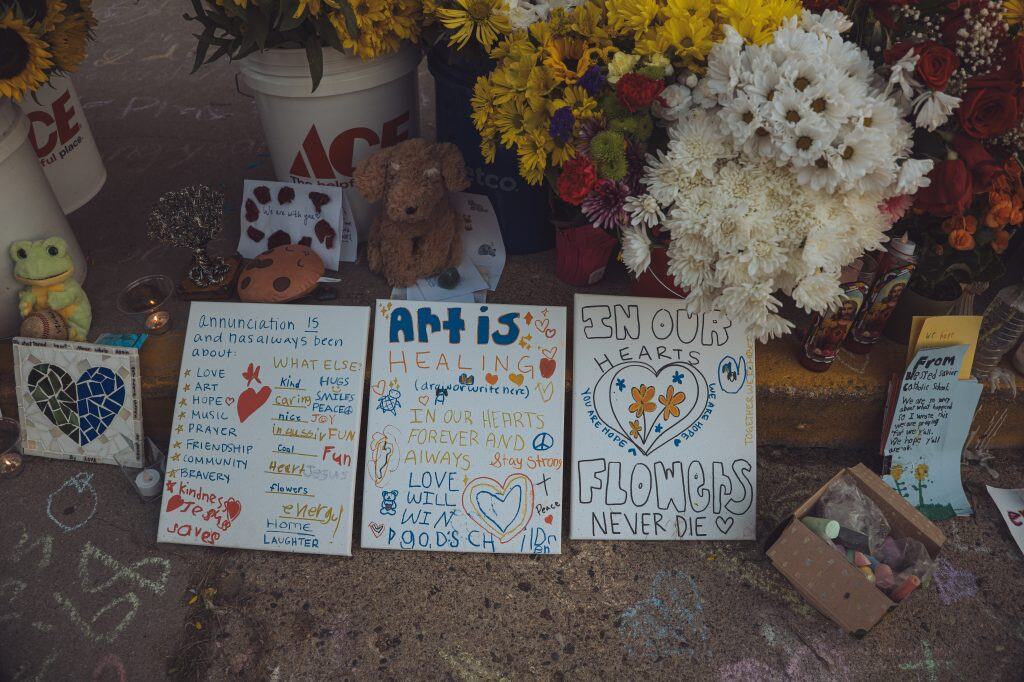 ACE
ful place
ACE
The help
etco.
We are with you
annunciation IS
and has always been
about:
LOVE
ART
HOPE
MUSIC
PRAYER
FRIENDSHIP
COMMUNITY
BRAVERY
Kindness
Jesus
saves
WHAT ELSE?
Kind
caring
nice
inclusive
Cool
Heart
flowers
energy
HOME
LAUGHTER
HUGS
SMILES
PEACE
JOY
FUN
Fun
Jesus
Art is
HEALING
(draw or write here)
IN OUR HEARTS
FOREVER AND
ALWAYS
Stay Strong
LOVE
WILL
WIN
Peace
IN OUR
HEARTS
YOU ARE HOPE
WE ARE HOPE
FLOWERS
NEVER DIE
We hope
From
Catholic School
We are so sorry
about what happened
So I wrote this
we are praying
for y'all.
We hope y'all